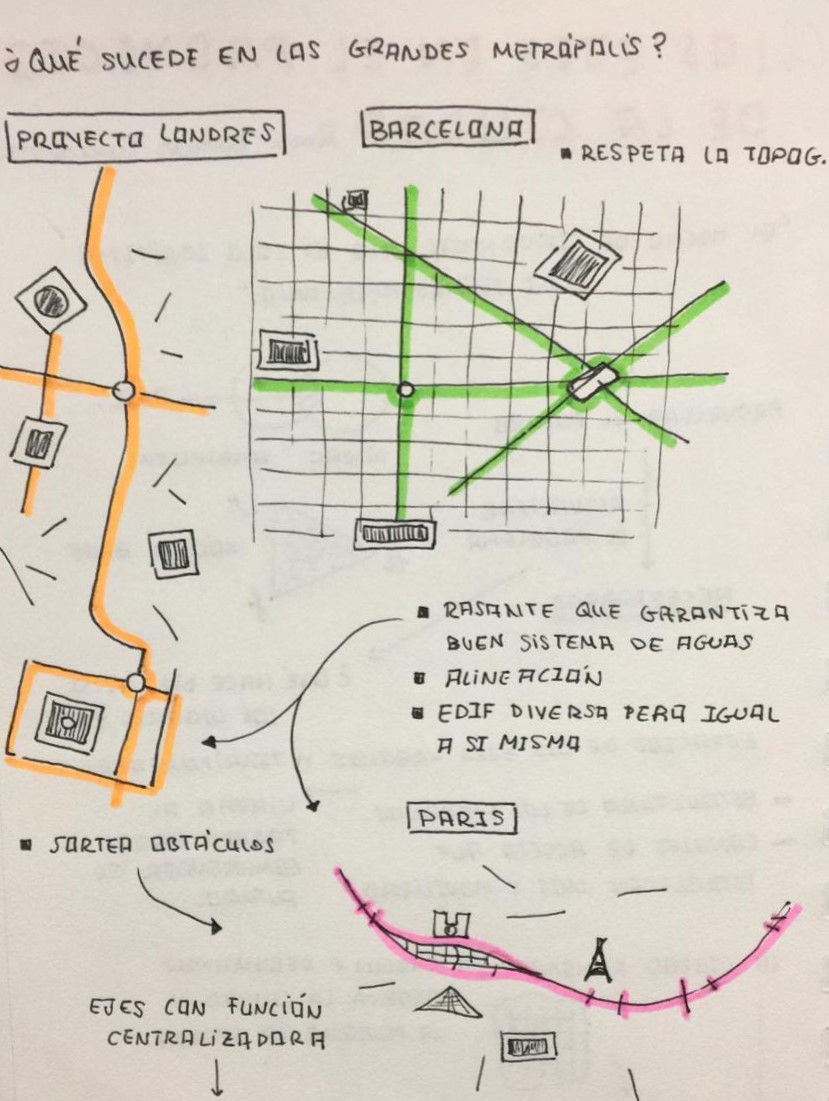 ¿QUÉ SUCEDE EN LAS GRANDES METRÓPOLIS?
PROYECTO LONDRES
BARCELONA
▪ RESPETA LA TOPOG.
▪ RASANTE QUE GARANTIZA
BUEN SISTEMA DE AGUAS
▪ ALINEACIÓN
▪ EDIF DIVERSA PERO IGUAL
A SI MISMA
PARIS
▪ SORTEA OBTÁCULOS
EJES CON FUNCIÓN
CENTRALIZADORA